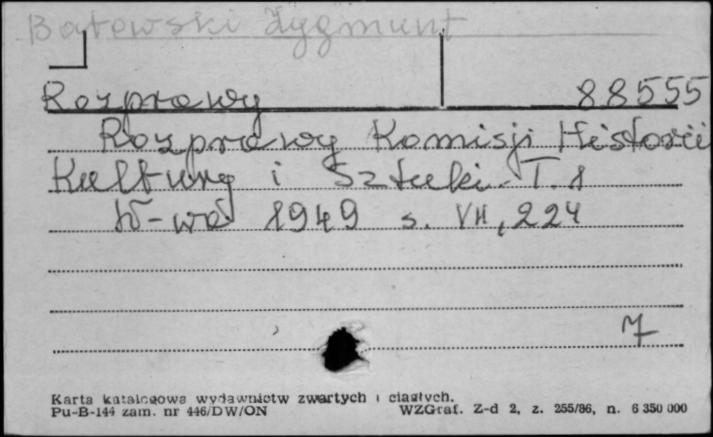 Batowski Zygmunt
Rozprawy 88555
Rozprawy Komisji Historii
Kultury i Sztuki. T. 1
W-wa 1949 s. VII, 224
7
Karta katalogowa wydawnictw zwartych i ciągłych.
Pu-B-144 zam. nr 446/DW/ON WZGraf. Z-d 2, z. 255/86, n. 6 350 000